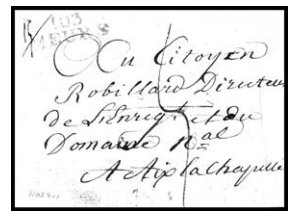 103
Au Citoyen
Robillard Directeur
de L'Enreg.t et du
Domaine N.al
A Aix la Chapelle